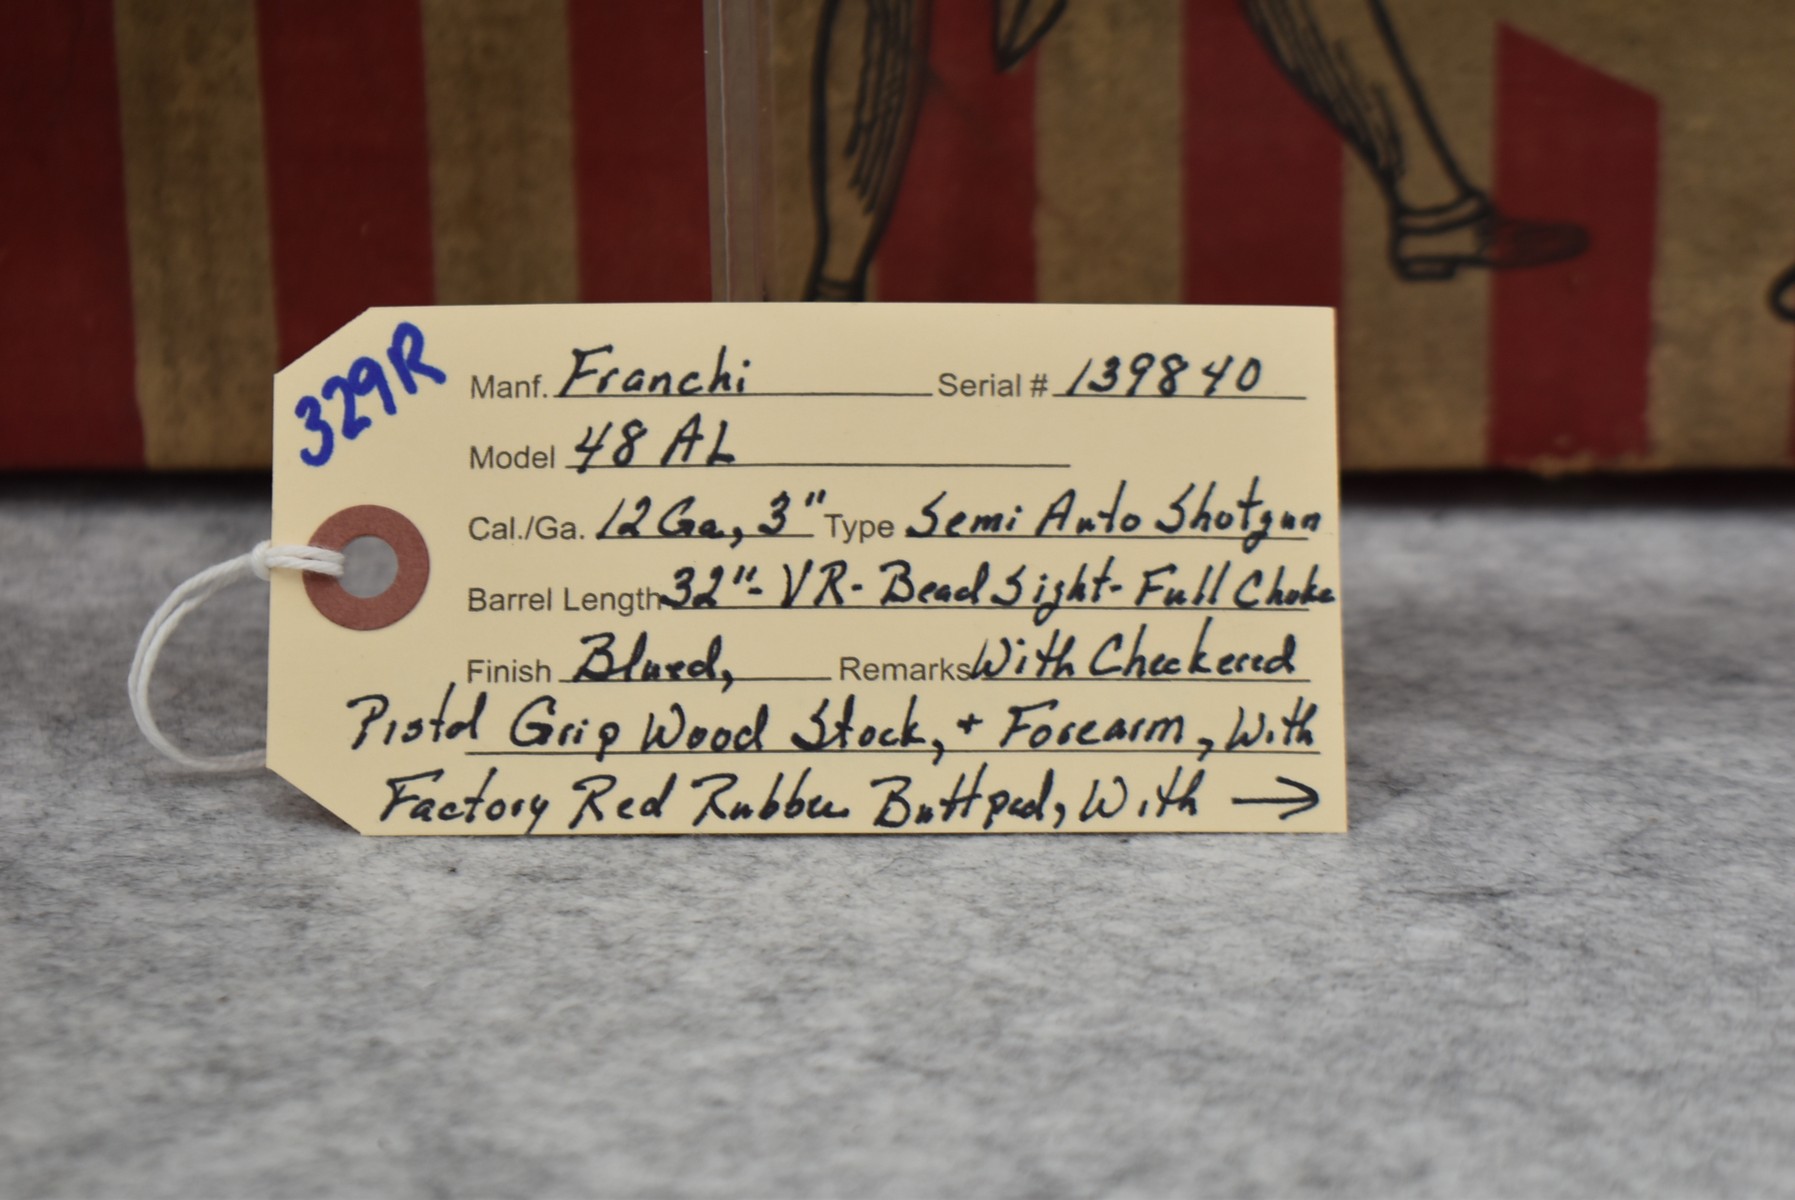 329R
Manf. Franchi Serial # 139840
Model 48 AL
Cal./Ga. 12 Ga, 3" Type Semi Auto Shotgun
Barrel Length 32"- VR- Bead Sight- Full Choke
Finish Blued, Remarks With Checkered
Pistol Grip Wood Stock, + Forearm, With
Factory Red Rubber Buttpad, With →